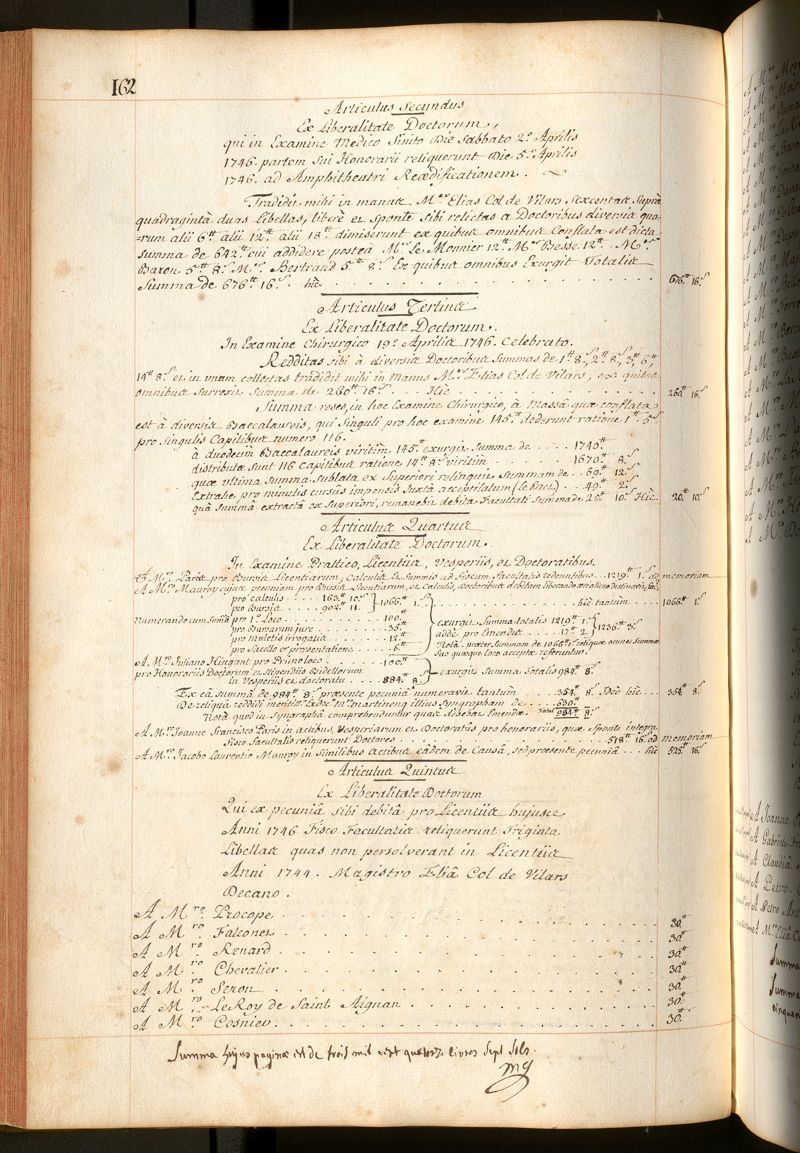 162
Articulus Secundus
Ex Liberalitate Doctorum,
qui in Examine Medico finito Die Sabbato 2ª Aprilis
1746. partem sui Honorarii reliquerunt Die 5ª Aprilis
1746. ad Amphitheatri Reædificationem.
Tradidit mihi in manus Mer Elias Col de Vilars sexcentas supra
quadraginta duas Libellas, liberè et sponte sibi relictas a Doctoribus diversis quo-
=rum alii 6tt alii 12tt alii 18tt dimiserunt ex quibus omnibus Conflata est dicta
summa de 642tt cui addidere posteà Mer Le Monnier 12tt Mer Besse 12tt Mer
Baron 5tt 8s Mer Bertrand 5tt 8s Ex quibus omnibus Exurgit Totalis
Summa de 676tt 16s hic 676tt 16s
Articulus Tertius
Ex Liberalitate Doctorum.
In Examine Chirurgico 19ª Aprilis 1746. Celebrato.
Redditas sibi à diversis Doctoribus Summas de 1tt 8s, 2tt 8s, 3tt 6tt,
14tt 8s et in unam collectas tradidit mihi in manus Mer Elias Col de Vilars, ex quibus
omnibus Surrexit Summa de 260tt 16s Hic 260tt 16s
Summa reses, in hoc Examine Chirurgico, à Massâ quæ conflata
est à diversis Baccalaureis, qui Singuli pro hoc examine 145tt dederunt ratione 1tt 5s
pro singulis Capitibus numero 116.
à duodecim Baccalaureis viritim 145tt exurgit Summa de 1740tt
distributæ sunt 116 Capitibus ratione 14tt 8s viritim 1670tt 8s
quæ ultima summa sublata ex superiori relinquit Summam de 69tt 12s
Extrahe pro minutis cursûs impensis juxtà acceptilatum (Le Brez) 49tt 2s
quâ summâ extractâ ex superiori, remanebit debita Facultati Summa de 20tt 10s Hic 20tt 10s
Articulus Quartus
Ex Liberalitate Doctorum.
In Examine Prattico, Licentiis, Vesperiis, et Doctoratibus.
A Mro Paris pro Bursis Licentiarum, Calculis et Summis ad Fiscum Facultatis redeuntibus 1219tt 1s ad memoriam
A Mro Mauroy cujus pecuniam pro Bursis Licentiarum et Calculis, Doctoribus debitam
pro Calculis 163tt 10s } 1066tt 1s hic tantum 1066tt 1s
pro Bursis 902tt 11s
Numerando cum Summâ pro 1º Loco 100tt exurgit Summa totalis 1219tt 1s } 1236tt 3s
pro Bursarum jure 35tt adde pro Emendis 17tt 2s
pro Muletis irrogatis 12tt Nota. præter Summam de 1066tt 1s reliquæ omnes Summæ
pro Sacello et præsentatione 6tt suo quæque loco acceptæ referuntur.
A Mro Juliano Hingant pro Primo loco 100tt } exurgit Summa Totalis 984tt 8s
pro Honorariis Doctorum et Stipendiis Bidellorum
in Vesperiis et doctoratu 884tt 8s
Ex eâ Summâ de 984tt 8s præsente pecuniâ numeravit tantum 354tt 8s Ideò hic 354tt 8s
De reliquâ reddidi meritiss. Exdec. Mro Martinenq illius Syngrapham de 630tt
Nota quod in Syngraphâ comprehenduntur quas debebat Emendæ. Total 984tt 8s
A Mro Joanne Francisco Paris in actibus, Vesperiarum et Doctoratûs pro honorariis, quæ sponte integra
Fisco Facultatis reliquerunt Doctores 518tt 16s ad memoriam
A Mro Jacobo Laurentio Mauroy in Similibus actibus eâdem de Causâ, sed præsente pecuniâ hic 525tt 16s
Articulus Quintus
Ex Liberalitate Doctorum
Qui ex pecuniâ sibi debitâ pro Licentiis hujusce
Anni 1746 Fisco Facultatis reliquerunt Triginta
Libellas quas non persolverant in Licentiis
Anni 1744. Magistro Eliâ Col de Vilars
Decano.
A Mro Procope 30tt
A Mro Falconet 30tt
A Mro Renard 30tt
A Mro Chevalier 30tt
A Mro Seron 30tt
A Mro LeRoy de Saint Aignan 30tt
A Mro Cosnier 30tt
Summa hujus paginæ est de trois mil cent quatorze livres Sept Sols.